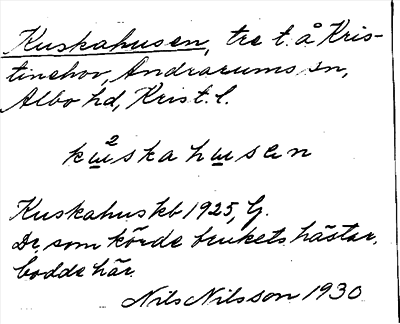 Kuskahusen, tre t. å Kris-
tinehov, Andrarums sn,
Albo hd, Krist. l.
ku²skahusen
Kuskahus kb 1925, G.
Dr. som körde brukets hästar,
bodde här.
Nils Nilsson 1930